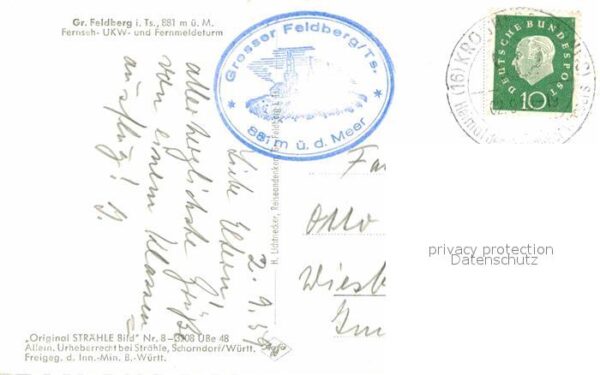 Gr. Feldberg i. Ts., 881 m ü. M.
Fernseh- UKW- und Fernmeldeturm
Grosser Feldberg/Ts.
881 m ü. d. Meer
DEUTSCHE BUNDESPOST
10
(16) KRO
2.9.59
Liebe Eltern!
allerherzlichste Grüße
von einem Klassen
ausflug!
H. Lichtnecker, Reiseandenken
Fa
Otto
Wiesb
privacy protection
Datenschutz
„Original STRÄHLE Bild" Nr. 8-
08 UBe 48
Allein. Urheberrecht bei Strähle, Schorndorf/Württ.
Freigeg. d. Inn.-Min. B.-Württ.